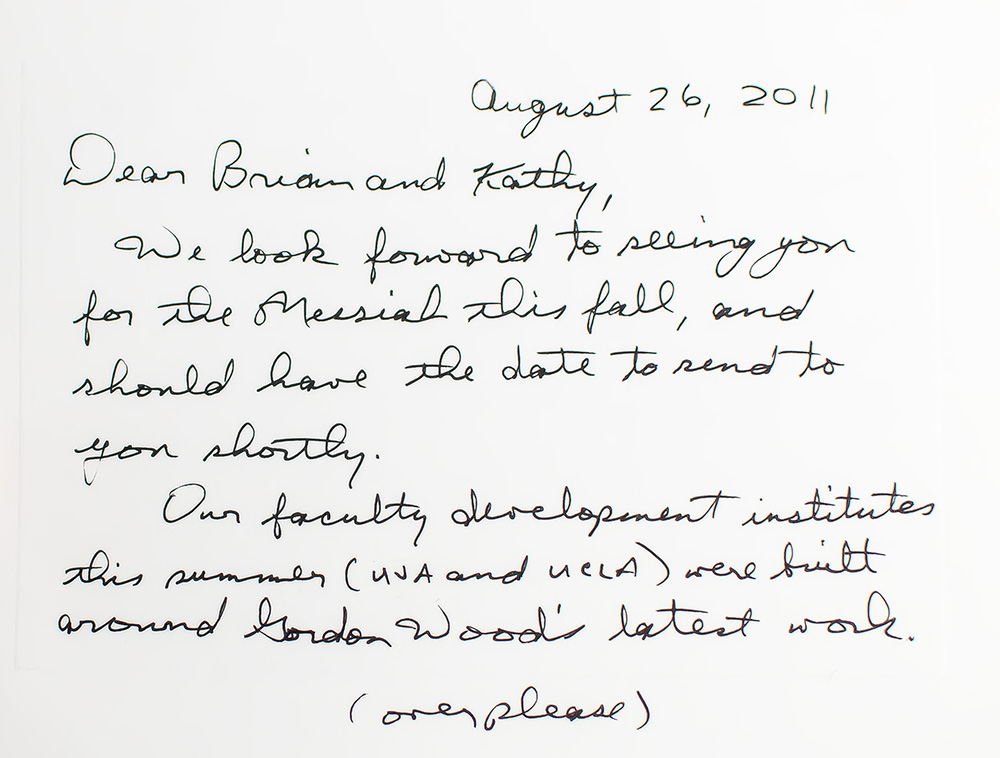 August 26, 2011
Dear Brian and Kathy,
We look forward to seeing you
for the Messiah this fall, and
should have the date to send to
you shortly.
Our faculty development institutes
this summer (UVA and UCLA) were built
around Gordon Wood's latest work.
(over please)